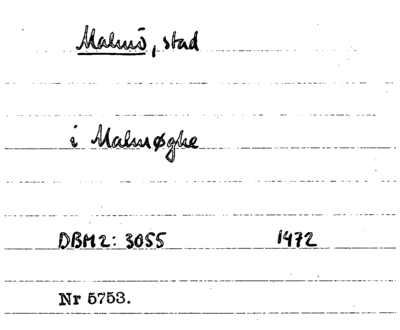 Malmö, stad
i Malmøghe
DBM2: 3055 1472
Nr 5753.